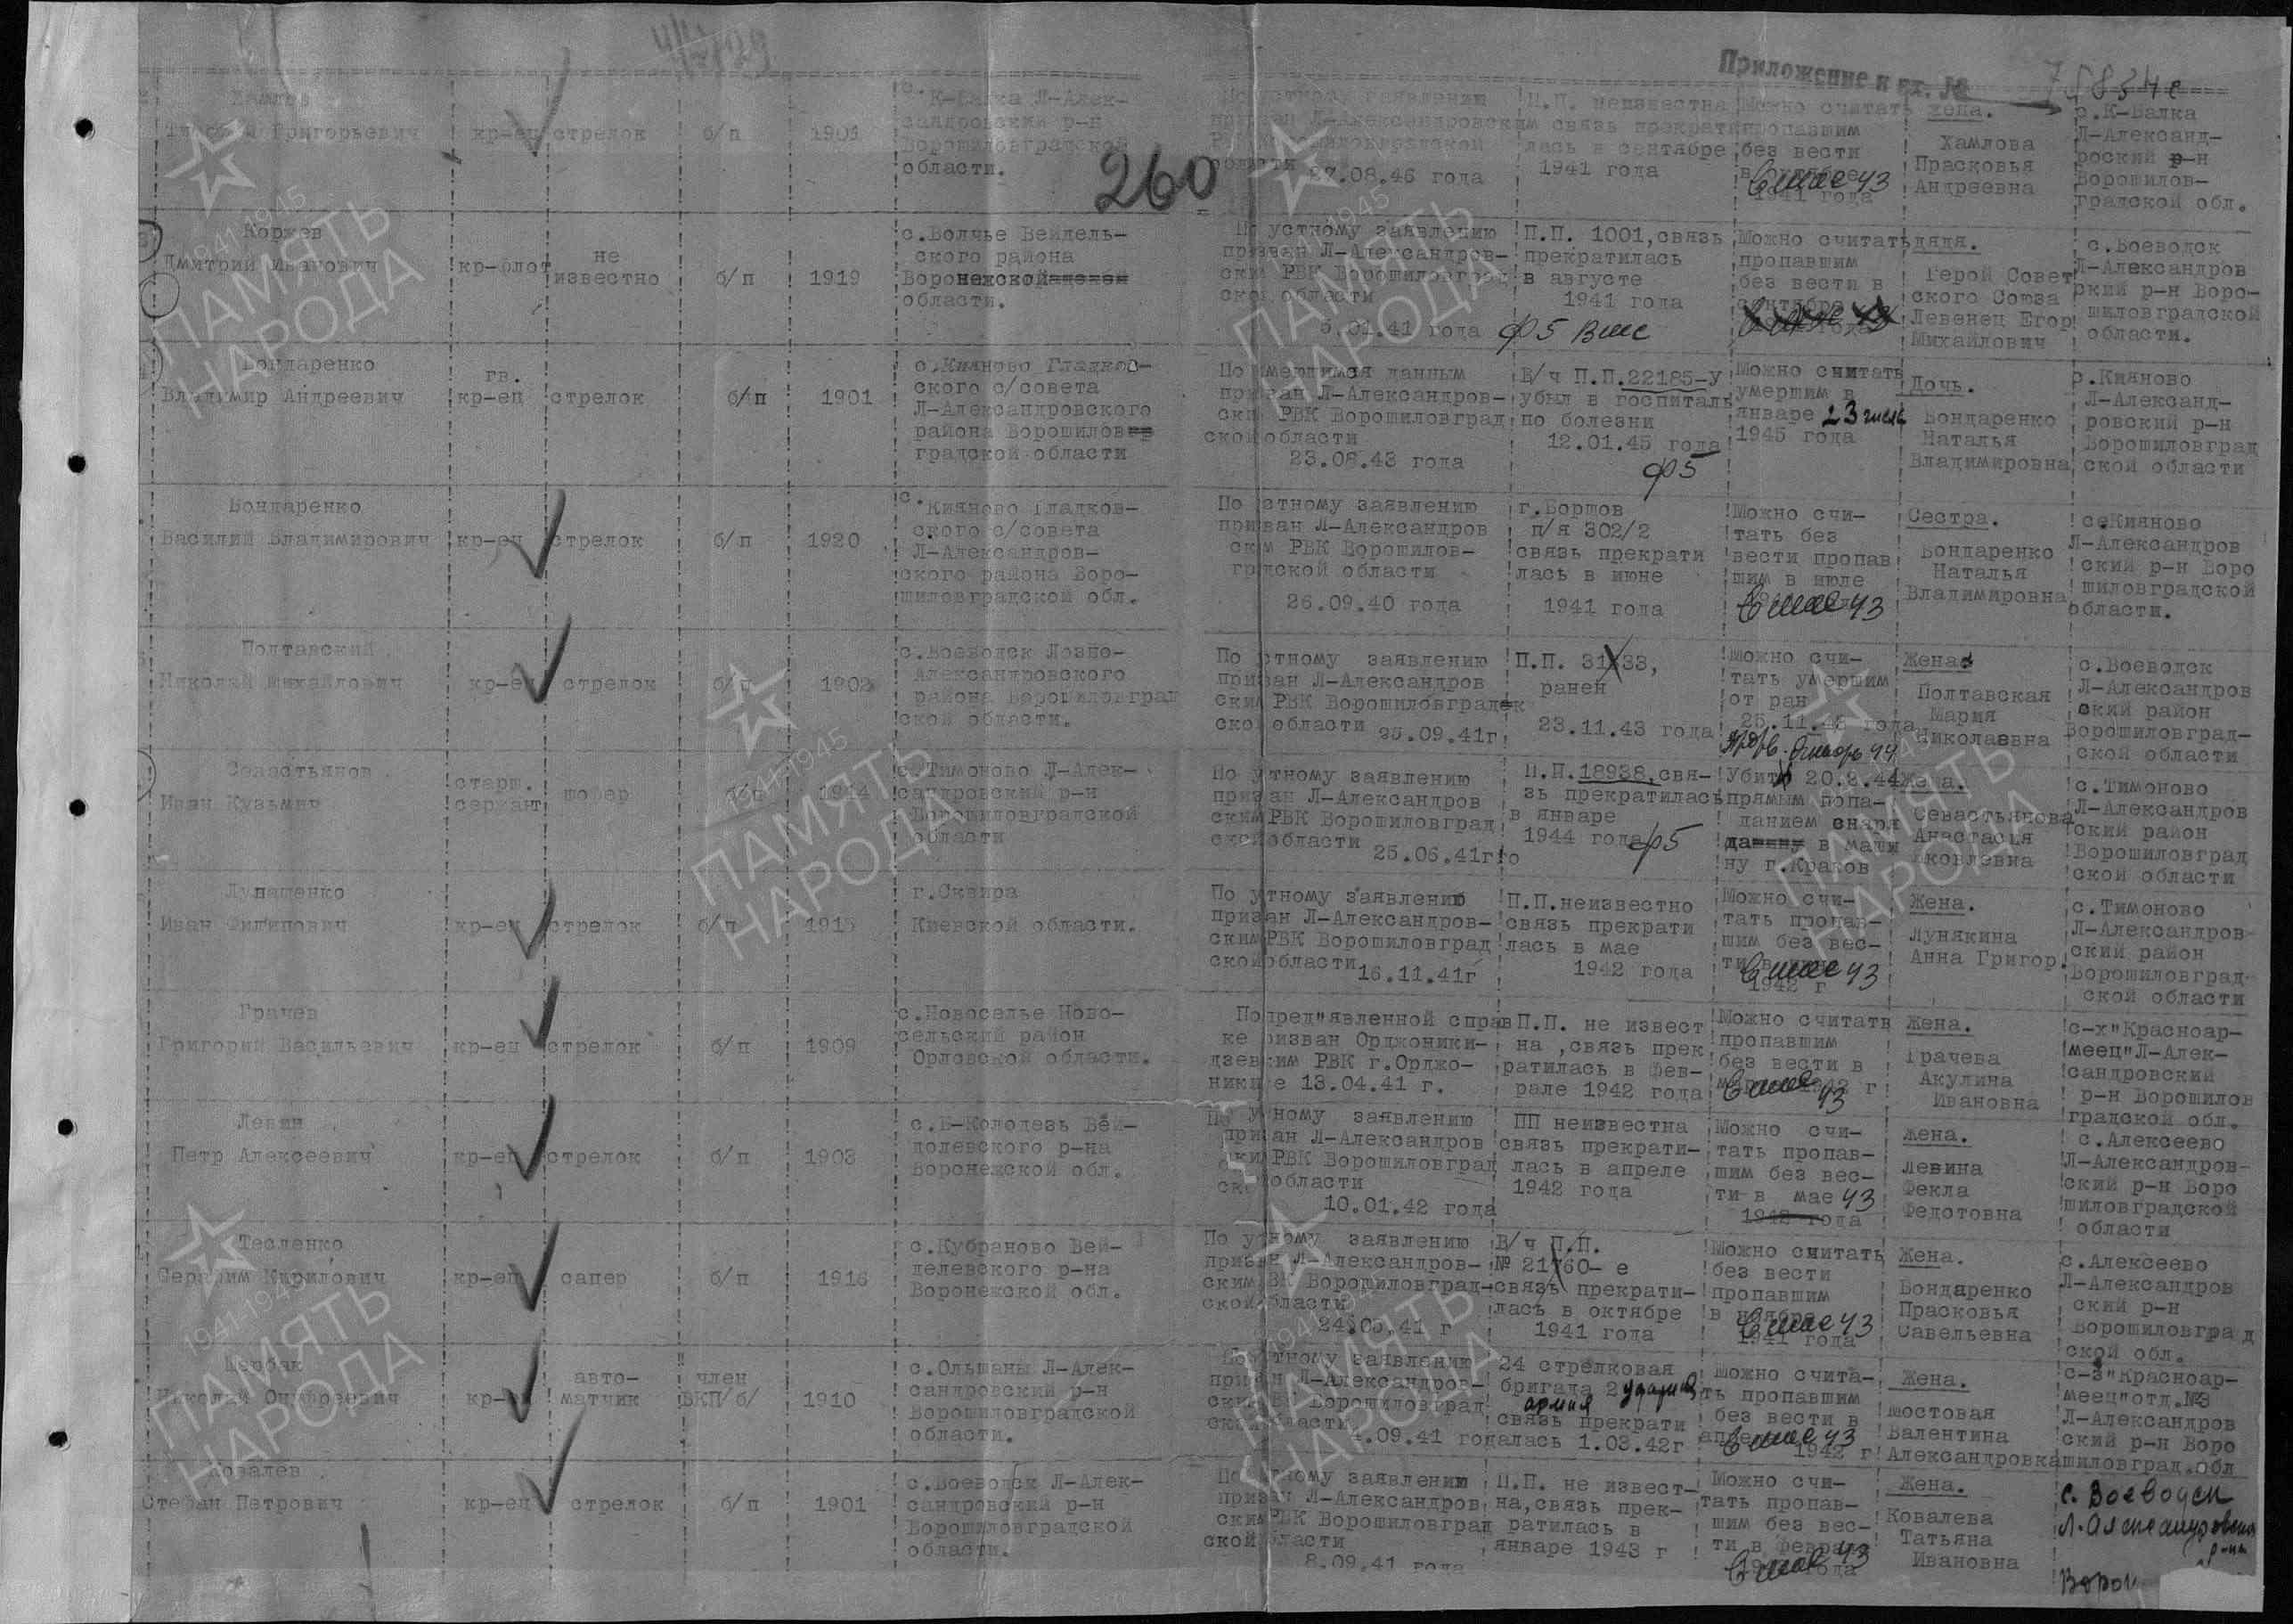 Приложение к вх. №
75834с
260
Хамлов
Григорьевич
кр-ец
стрелок
б/п
1901
с.
К-Балка Л-Алек-
сандровский р-н
Ворошиловградской
области.
По устному заявлению
призван Л-Александровским
РВК Ворошиловградской
области 27.08.46 года
П.П. неизвестна
связь прекрати
лась в сентябре
1941 года
Можно считать
пропавшим
без вести
в
1941 года
в мае 43
жена.
Хамлова
Прасковья
Андреевна
с.К-Балка
Л-Александ-
роский р-н
Ворошилов-
градской обл.
Коржев
Дмитрий Иванович
кр-флот
не
известно
б/п
1919
с.Волчье Вейдель-
ского района
Воронежской
области.
По устному заявлению
призван Л-Александров-
ским РВК Ворошиловград
ской области
5.01.41 года
П.П. 1001, связь
прекратилась
в августе
1941 года
ф5 вмс
Можно считать
пропавшим
без вести в
сентябре
дядя.
Герой Совет
ского Союза
Левенец Егор
Михайлович
с.Воеводск
Л-Александров
ркий р-н Воро-
шиловградской
области.
Бондаренко
Владимир Андреевич
гв.
кр-ец
стрелок
б/п
1901
с.Кияново Гладков-
ского с/совета
Л-Александровского
района Ворошилов
градской области
По имеющимся данным
призван Л-Александров-
ским РВК Ворошиловград
ской области
23.08.43 года
В/ч П.П.22185-У
убыл в госпиталь
по болезни
12.01.45 года
ф5
Можно считать
умершим в
январе 23
1945 года
Дочь.
Бондаренко
Наталья
Владимировна
с.Кияново
Л-Александ-
ровский р-н
Ворошиловград
ской области
Бондаренко
Василий Владимирович
кр-ец
стрелок
б/п
1920
с.
Кияново Гладков-
ского с/совета
Л-Александров-
ского района Воро-
шиловградской обл.
По устному заявлению
призван Л-Александров
ским РВК Ворошилов-
градской области
26.09.40 года
г.Борщов
п/я 302/2
связь прекрати
лась в июне
1941 года
Можно счи-
тать без
вести пропав
шим в июле
в мае 43
Сестра.
Бондаренко
Наталья
Владимировна
с.Кияново
Л-Александров
ский р-н Воро
шиловградской
области.
Полтавский
Николай Михайлович
кр-ец
стрелок
б/п
1902
с.Воеводск Лозно-
Александровского
района Ворошиловград
ской области.
По устному заявлению
призван Л-Александров
ским РВК Ворошиловград
ской области 25.09.41г
П.П. 31 33,
ранен
23.11.43 года
Можно счи-
тать умершим
от ран
25.11.43 года
Жена
Полтавская
Мария
Николаевна
с.Воеводск
Л-Александров
ский район
Ворошиловград-
ской области
Севастьянов
Иван Кузьмич
старш.
сержант
шофер
б/п
1914
с.Тимоново Л-Алек-
сандровский р-н
Ворошиловградской
области
По устному заявлению
призван Л-Александров
ским РВК Ворошиловград
ской области
25.06.41г
П.П.18938,свя-
зь прекратилась
в январе
1944 года
ф5
Убит 20.2.44
прямым попа-
данием снаря
да в маши
ну г.Краков
Жена.
Севастьянова
Анастасия
Яковлевна
с.Тимоново
Л-Александров
ский район
Ворошиловград
ской области
Лунашенко
Иван Филипович
кр-ец
стрелок
б/п
1915
г.Сквира
Киевской области.
По устному заявлению
призван Л-Александров-
ским РВК Ворошиловград
ской области
16.11.41г
П.П.неизвестно
связь прекрати
лась в мае
1942 года
Можно счи-
тать пропав-
шим без вес-
ти в
1942 г
в мае 43
Жена.
Лунякина
Анна Григор.
с.Тимоново
Л-Александров-
ский район
Ворошиловград-
ской области
Грачев
Григорий Васильевич
кр-ец
стрелок
б/п
1909
с.Новоселье Ново-
сельский район
Орловской области.
По пред"явленной справ
ке призван Орджоники-
дзевским РВК г.Орджо-
никидзе 13.04.41 г.
П.П. не извест
на ,связь прек
ратилась в фев-
рале 1942 года
Можно считать
пропавшим
без вести в
1942 г
в мае 43
Жена.
Грачева
Акулина
Ивановна
с-х"Красноар-
меец"Л-Алек-
сандровский
р-н Ворошилов
градской обл.
Левин
Петр Алексеевич
кр-ец
стрелок
б/п
1903
с.Б-Колодезь Вей-
делевского р-на
Воронежской обл.
По устному заявлению
призван Л-Александров
ским РВК Ворошиловград
ской области
10.01.42 года
ПП неизвестна
связь прекрати-
лась в апреле
1942 года
Можно счи-
тать пропав-
шим без вес-
ти в мае 43
1942 года
Жена.
Левина
Фекла
Федотовна
с.Алексеево
Л-Александров-
ский р-н Воро
шиловградской
области
Тесленко
Серафим Кирилович
кр-ец
сапер
б/п
1916
с.Кубраково Вей-
делевского р-на
Воронежской обл.
По устному заявлению
призван Л-Александров-
ским РВК Ворошиловград-
ской области
24.05.41 г
В/ч П.П.
№ 21760- е
связь прекрати-
лась в октябре
1941 года
Можно считать
без вести
пропавшим
в ноябре
1941 года
в мае 43
Жена.
Бондаренко
Прасковья
Савельевна
с.Алексеево
Л-Александров
ский р-н
Ворошиловград
ской обл.
Щербак
Николай Онуфреевич
кр-ец
авто-
матчик
член
ВКП/б/
1910
с.Ольшаны Л-Алек-
сандровский р-н
Ворошиловградской
области.
По устному заявлению
призван Л-Александров-
ским РВК Ворошиловград
ской области
4.09.41 года
24 стрелковая
бригада 2 ударная
армия
связь прекрати
лась 1.03.42г
Можно счита-
ть пропавшим
без вести в
апреле
1942 г
в мае 43
Жена.
Мостовая
Валентина
Александровка
с-з"Красноар-
меец"отд.№3
Л-Александров
ский р-н Воро
шиловград.обл
Ковалев
Стефан Петрович
кр-ец
стрелок
б/п
1901
с.Воеводск Л-Алек-
сандровский р-н
Ворошиловградской
области.
По устному заявлению
призван Л-Александров
ским РВК Ворошиловград
ской области
8.09.41 года
П.П. не извест-
на,связь прек-
ратилась в
январе 1943 г
Можно счи-
тать пропав-
шим без вес-
ти в феврале
в мае 43
Жена.
Ковалева
Татьяна
Ивановна
с. Воеводск
Л. Александровский
р-н
Ворош
1941-1945
ПАМЯТЬ
НАРОДА
1941-1945
ПАМЯТЬ
НАРОДА
1941-1945
ПАМЯТЬ
НАРОДА
1941-1945
ПАМЯТЬ
НАРОДА
1941-1945
ПАМЯТЬ
НАРОДА
1941-1945
ПАМЯТЬ
НАРОДА